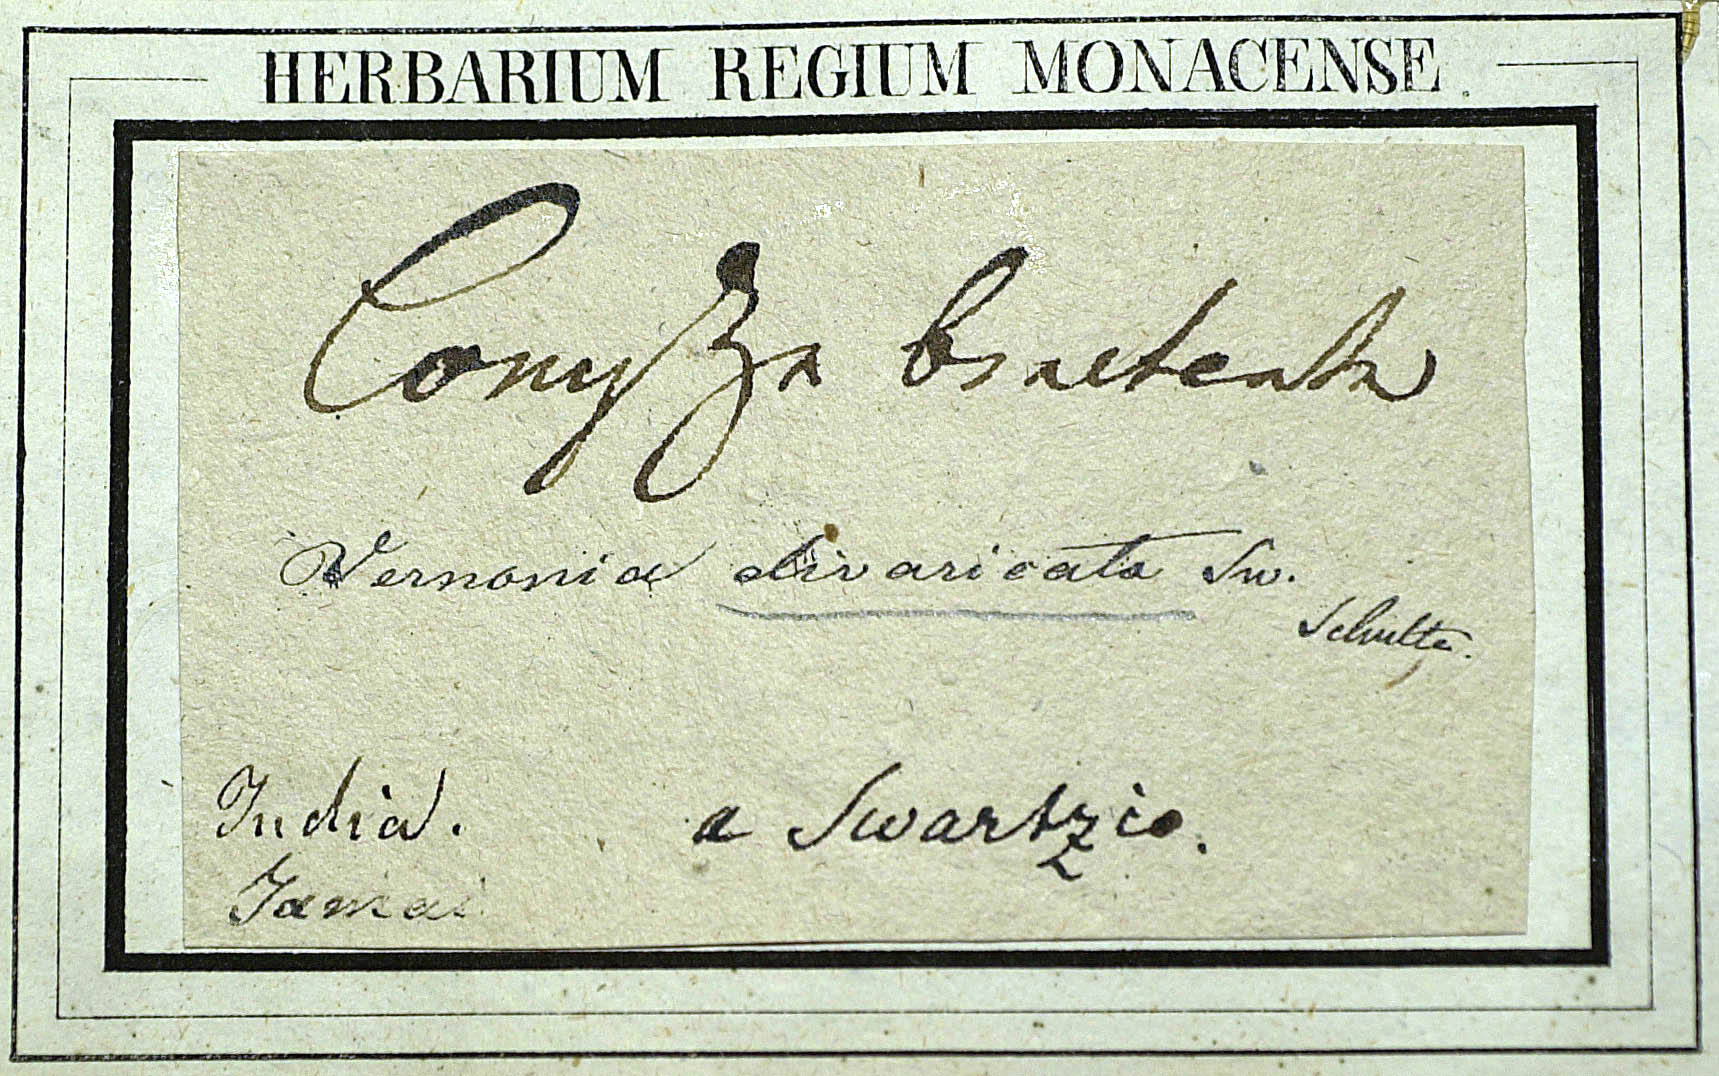 HERBARIUM REGIUM MONACENSE.
Conyza bracteata
Vernonia divaricata Sw.
Schultz.
India. a Swartzio.
Jamai